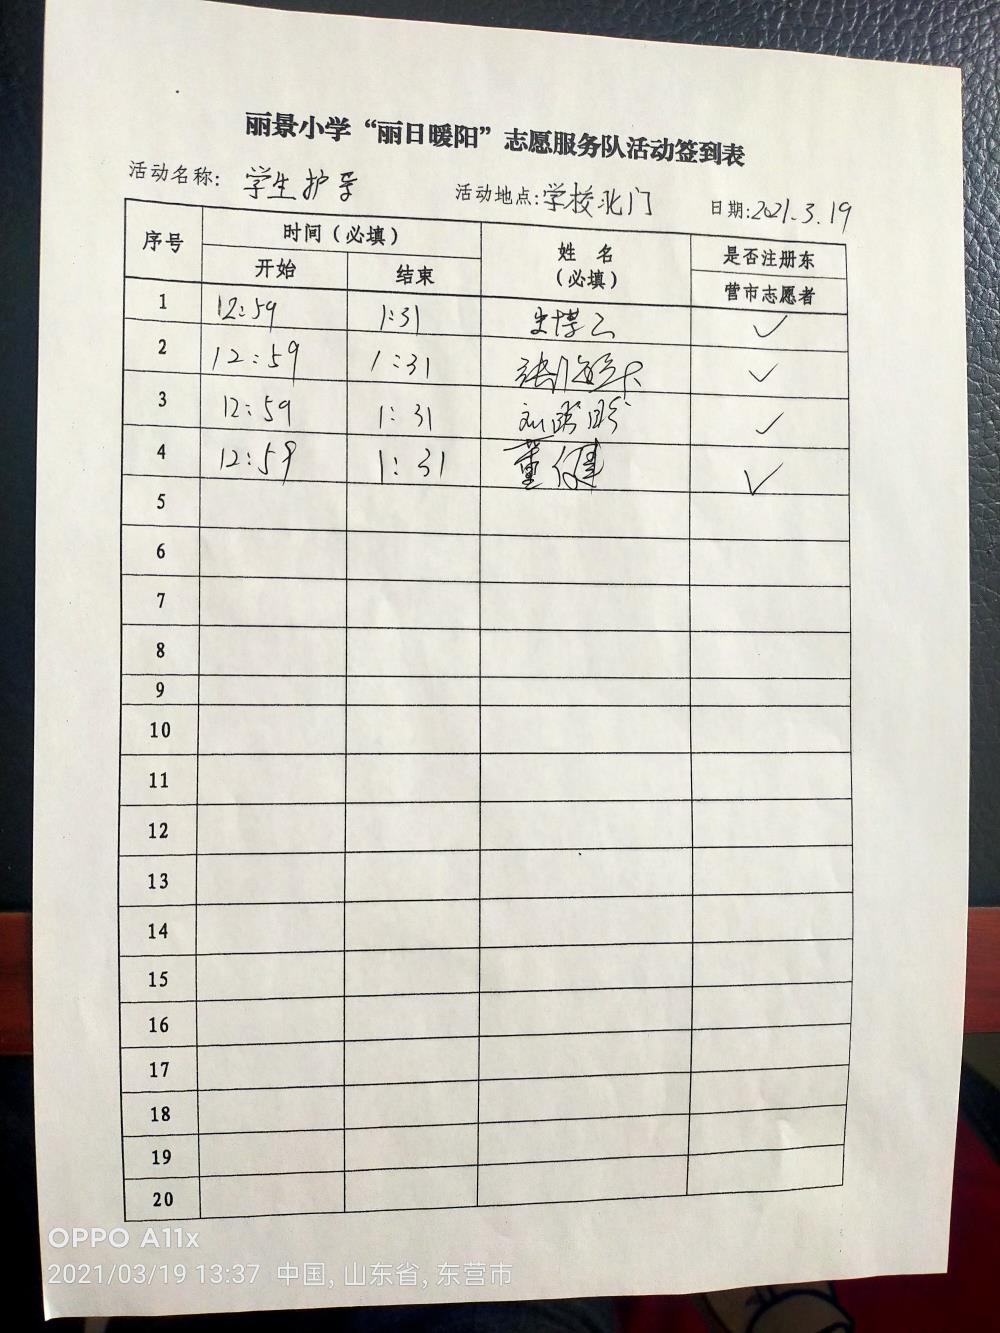 丽景小学“丽日暖阳”志愿服务队活动签到表
活动名称: 学生护导 活动地点:学校北门 日期:2021.3.19
序号 时间(必填) 姓 名 (必填) 是否注册东营市志愿者
开始 结束
1 12:59 1:31 ✓
2 12:59 1:31 ✓
3 12:59 1:31 刘 ✓
4 12:59 1:31 董健 ✓
5
6
7
8
9
10
11
12
13
14
15
16
17
18
19
20
OPPO A11x
2021/03/19 13:37 中国, 山东省, 东营市